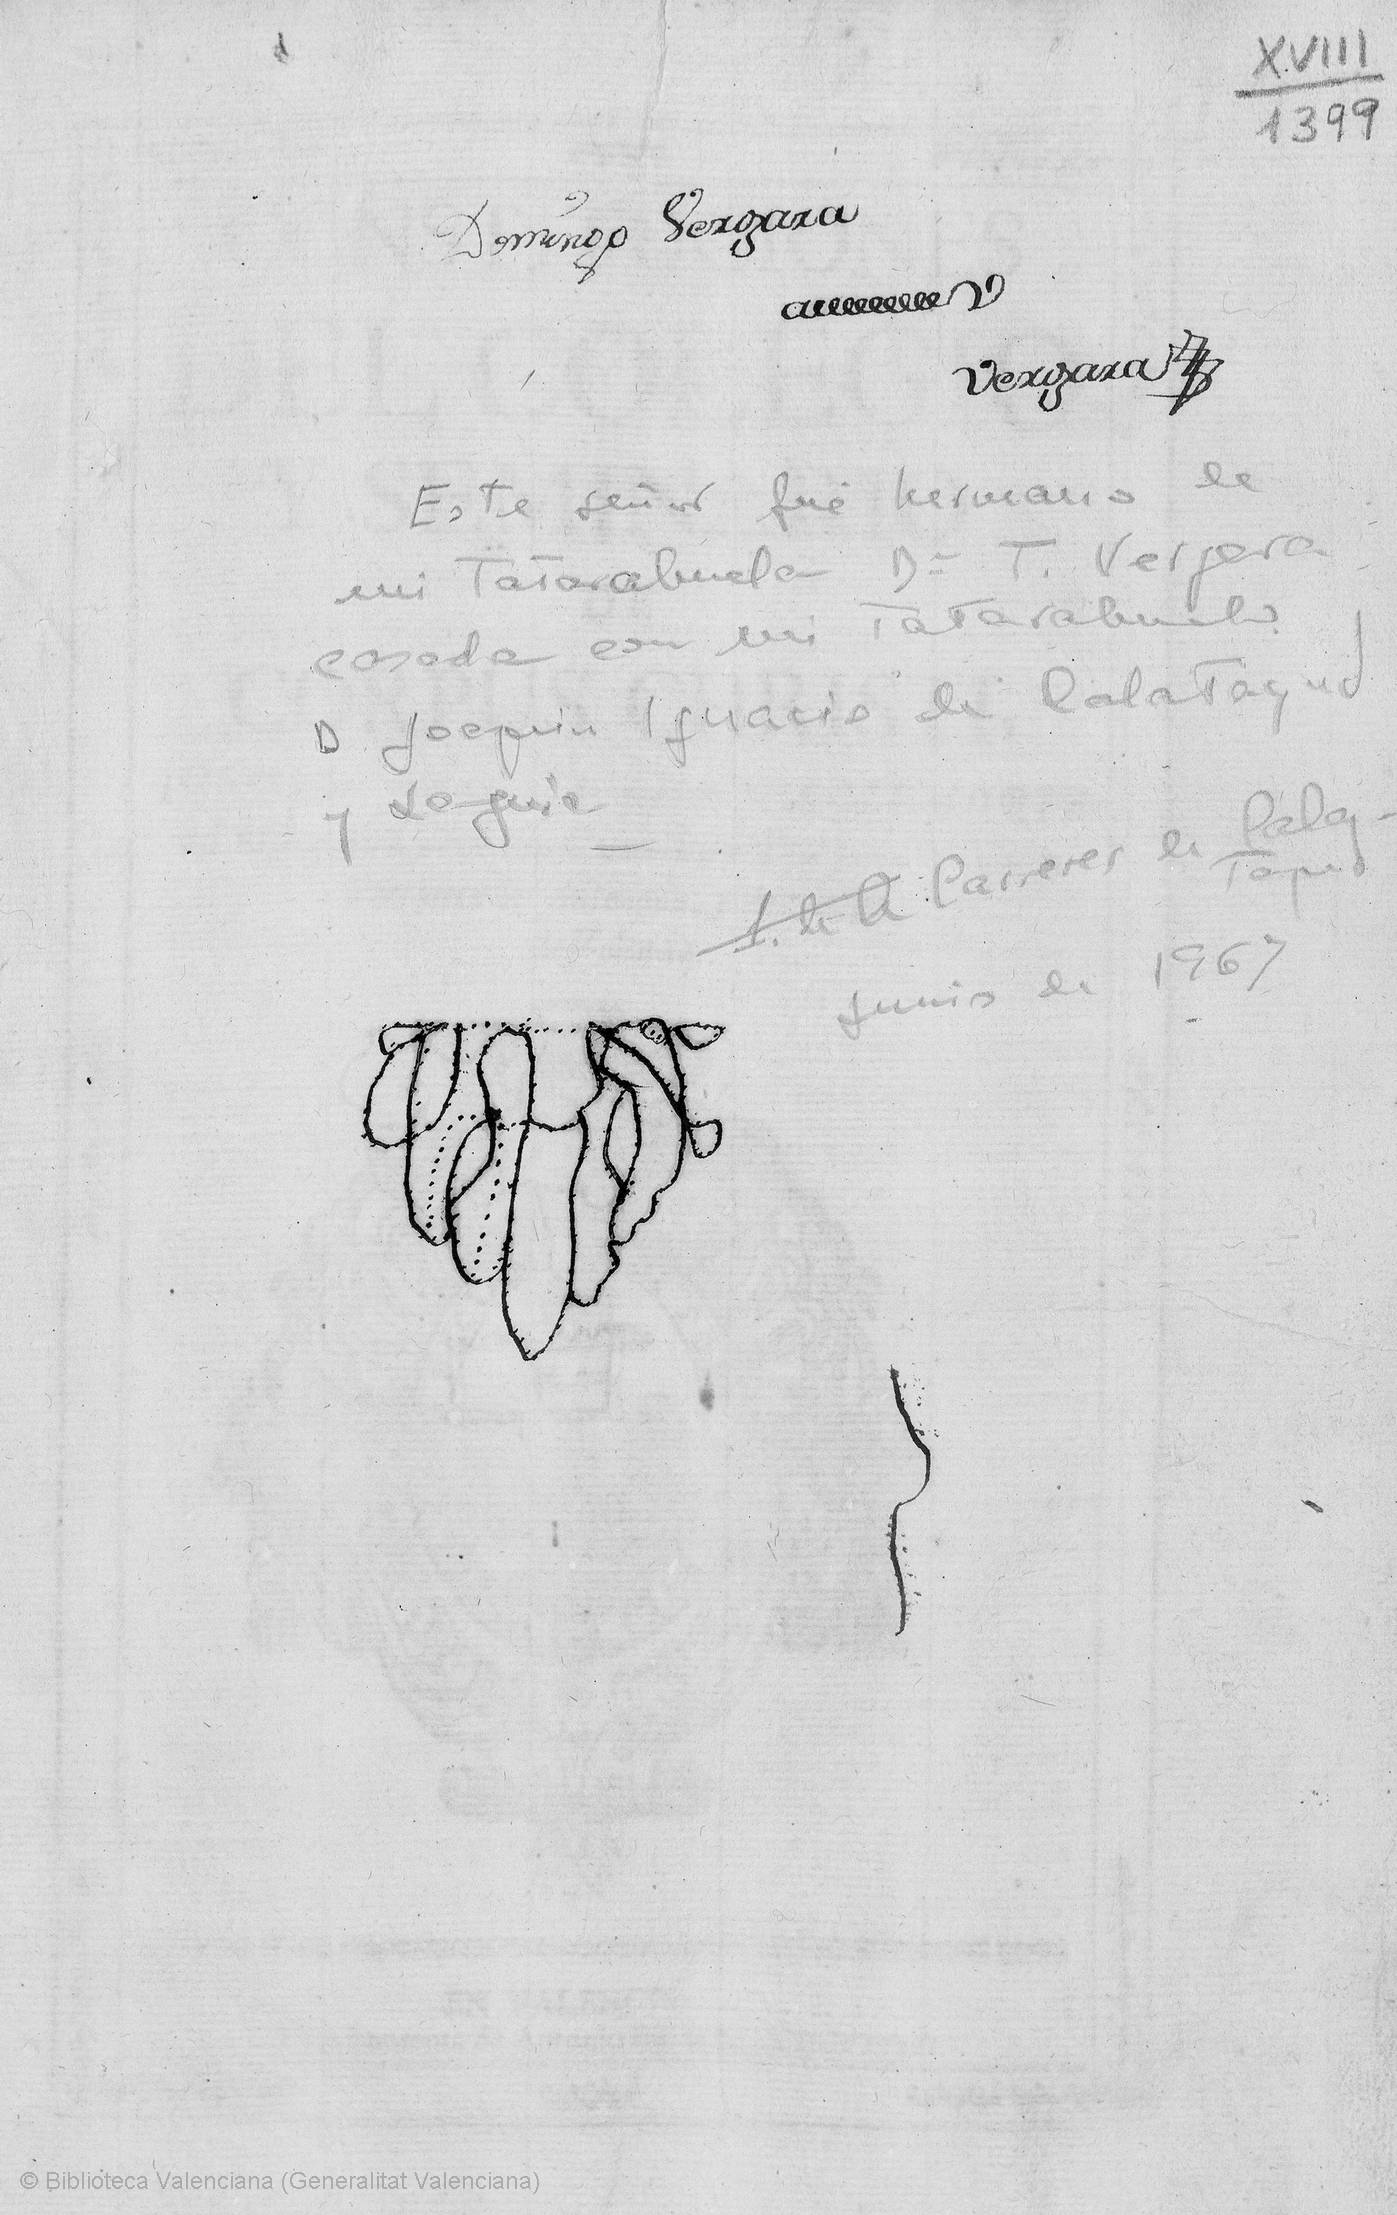 XVIII
1399
Domingo Vergara
V
Vergara
Este señor fué hermano de
mi Tatarabuela Dª T. Vergara
casada con mi Tatarabuelo
D Joaquin Ignacio de Calatayud
y
Carreres de Cala-
tayud
Junio de 1967
© Biblioteca Valenciana (Generalitat Valenciana)